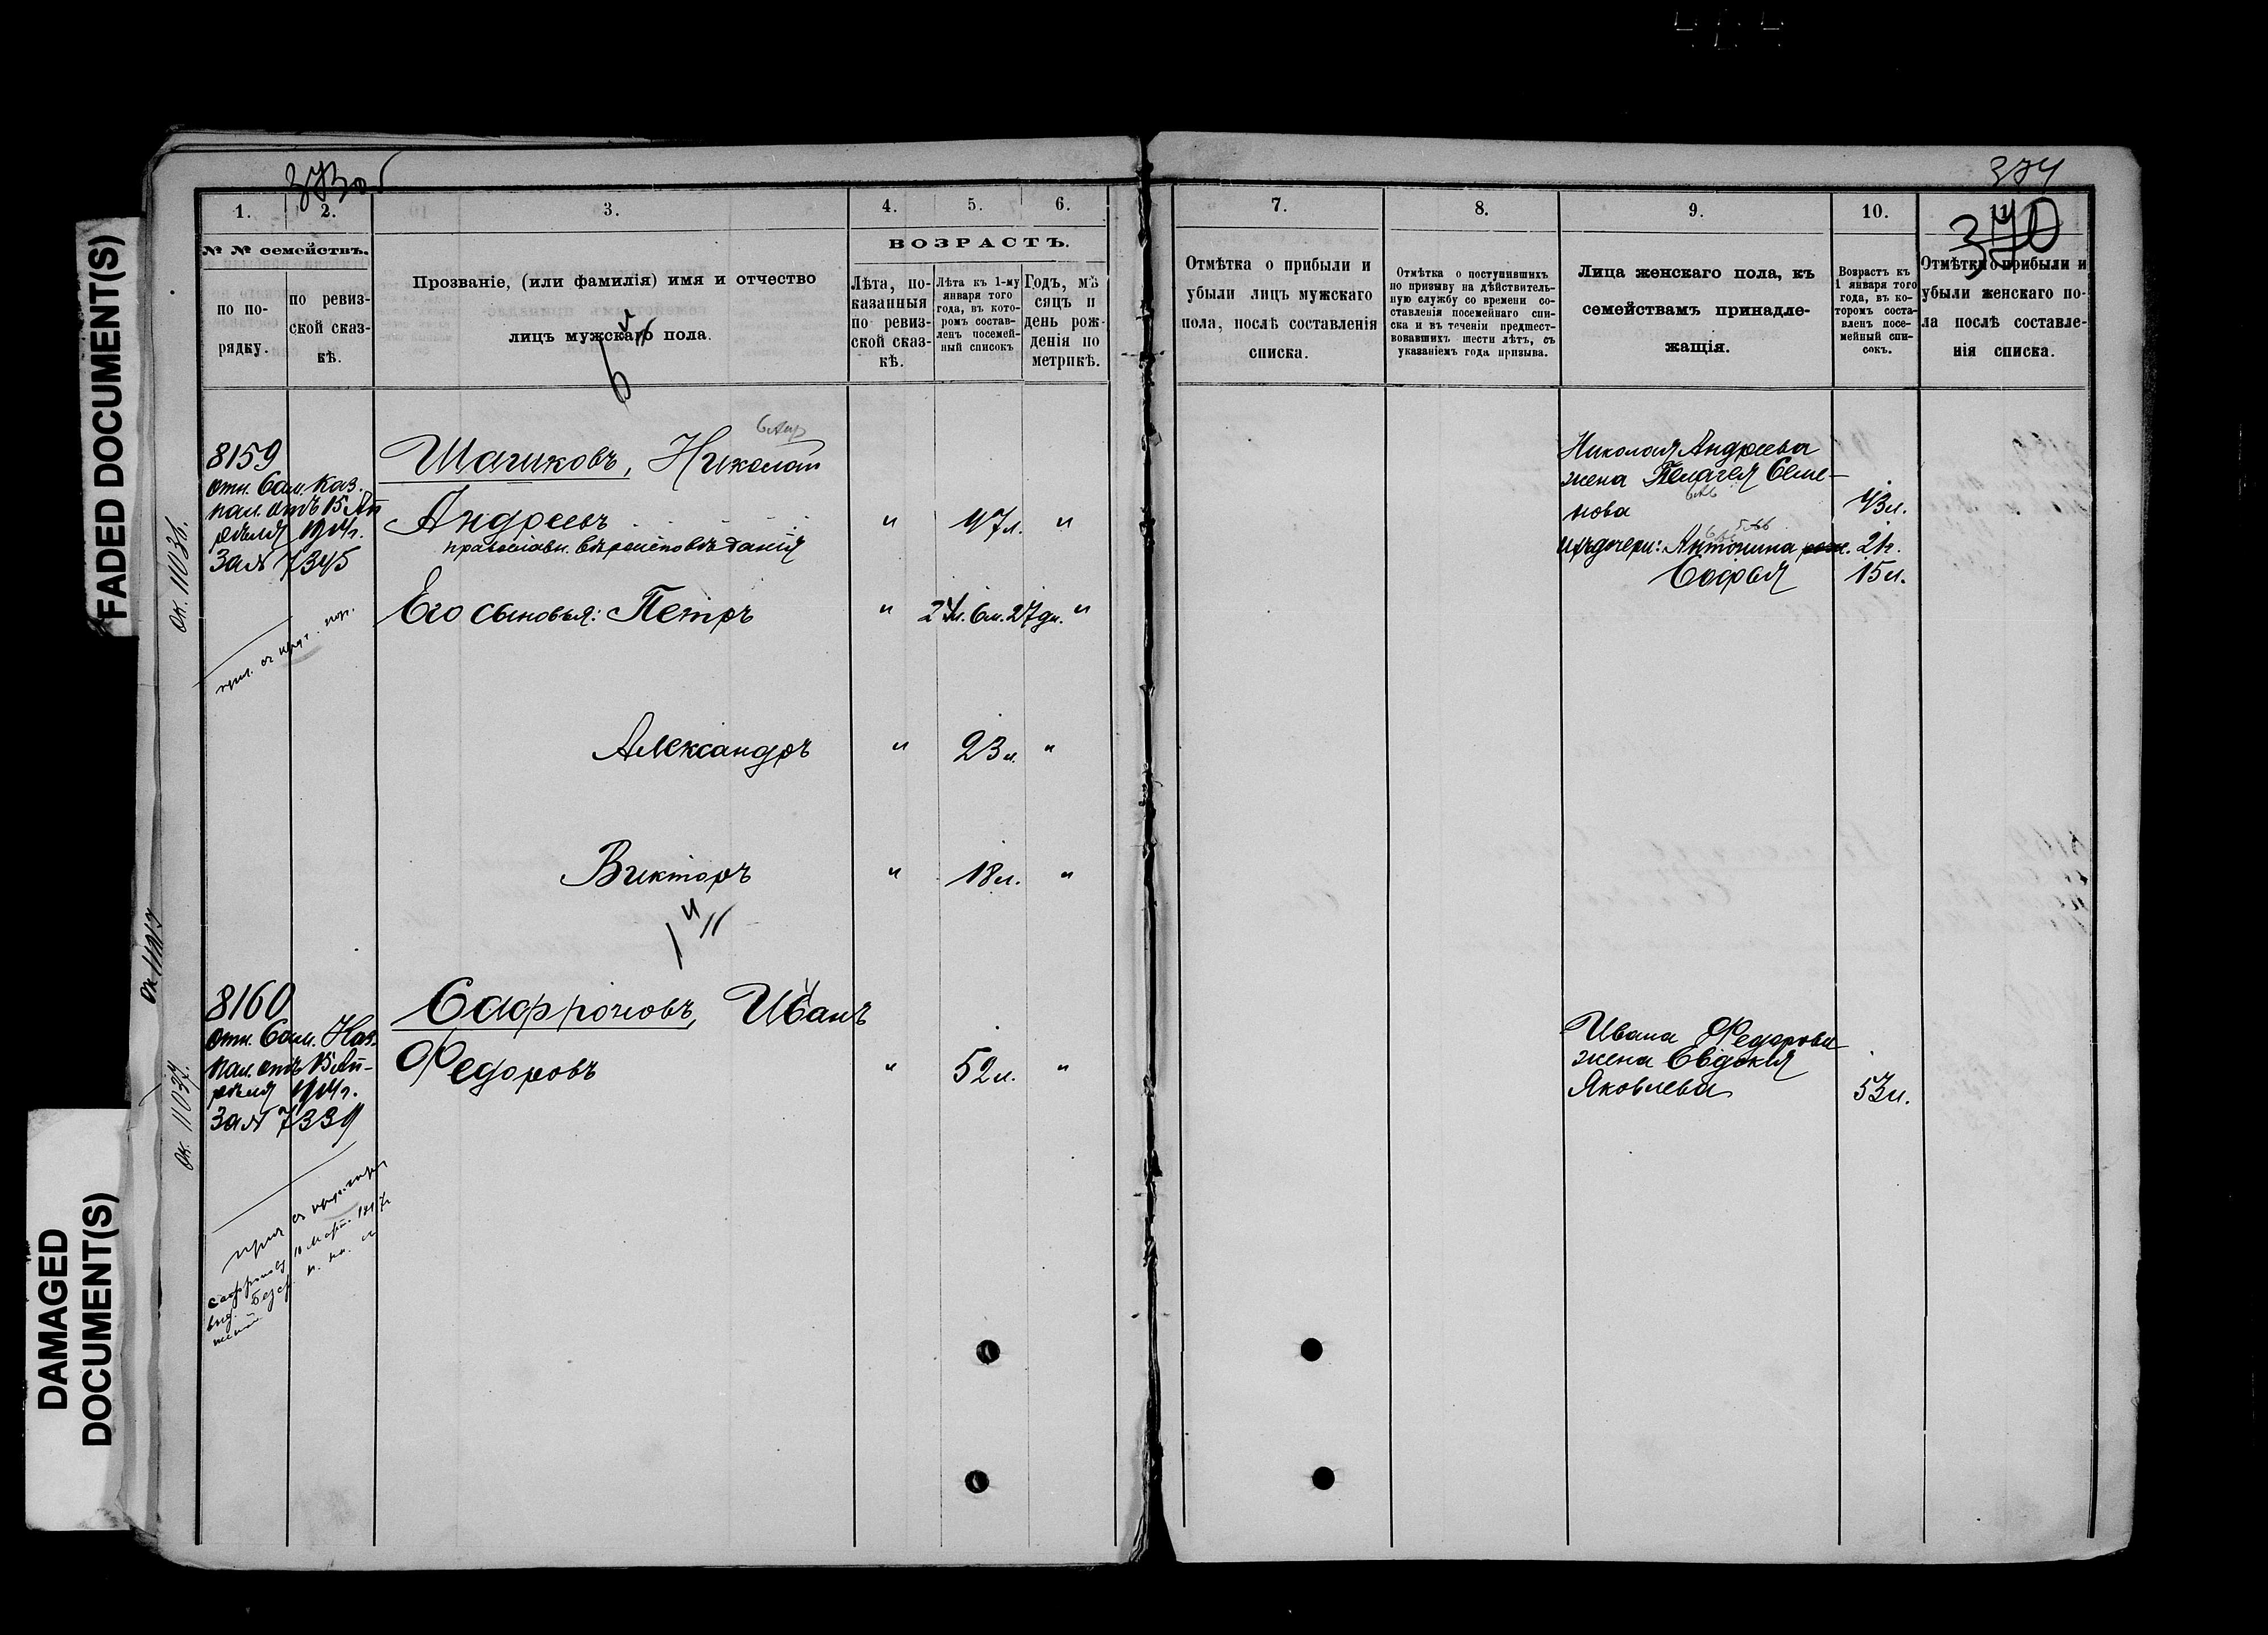 FADED DOCUMENT(S)
DAMAGED
DOCUMENT(S)
373 об
1.
2.
3.
4.
5.
6.
№ № семействъ.
по по-
рядку.
по ревиз-
ской сказ-
кѣ.
Прозваніе, (или фамилія) имя и отчество
лицъ мужскаго пола.
ВОЗРАСТЪ.
Лѣта, по-
казанныя
по ревиз-
ской сказ-
кѣ.
Лѣта къ 1-му
января того
года, въ кото-
ромъ состав-
ленъ посемей-
ный списокъ
Годъ, мѣ
сяцъ и
день рож-
денія по
метрикѣ.
8159
отн. Сам. Каз.
пал. отъ 15 Ап
рѣля 1904г.
За № 7345
Ок. 11036.
Шашковъ, Николай
Андреевъ
православн. вѣроисповѣданія
" 47л. "
Его сыновья: Петръ
" 24л. 6м. 27дн. "
Александръ
" 23л. "
Викторъ
" 18л. "
8160
отн. Сам. Каз.
пал. отъ 15 Ап-
рѣля 1904г.
За № 7339
Ок. 11037.
Сафроновъ, Иванъ
Федоровъ
" 52л. "
374
340
7.
8.
9.
10.
11.
Отмѣтка о прибыли и
убыли лицъ мужскаго
пола, послѣ составленія
списка.
Отмѣтка о поступившихъ
по призыву на дѣйствитель-
ную службу со времени со-
ставленія посемейнаго спи-
ска и въ теченіи предшест-
вовавшихъ шести лѣтъ, съ
указаніемъ года призыва.
Лица женскаго пола, къ
семействамъ принадле-
жащія.
Возрастъ къ
1 января того
года, въ ко-
торомъ соста-
вленъ посе-
мейный спи-
сокъ.
Отмѣтки о прибыли и
убыли женскаго по-
ла послѣ составле-
нія списка.
Николая Андреева
жена Пелагея Семе-
нова
43л.
Ихъ дочери: Антонина
21г.
Софья
15л.
Ивана Федорова
жена Евдокия
Яковлева
53л.